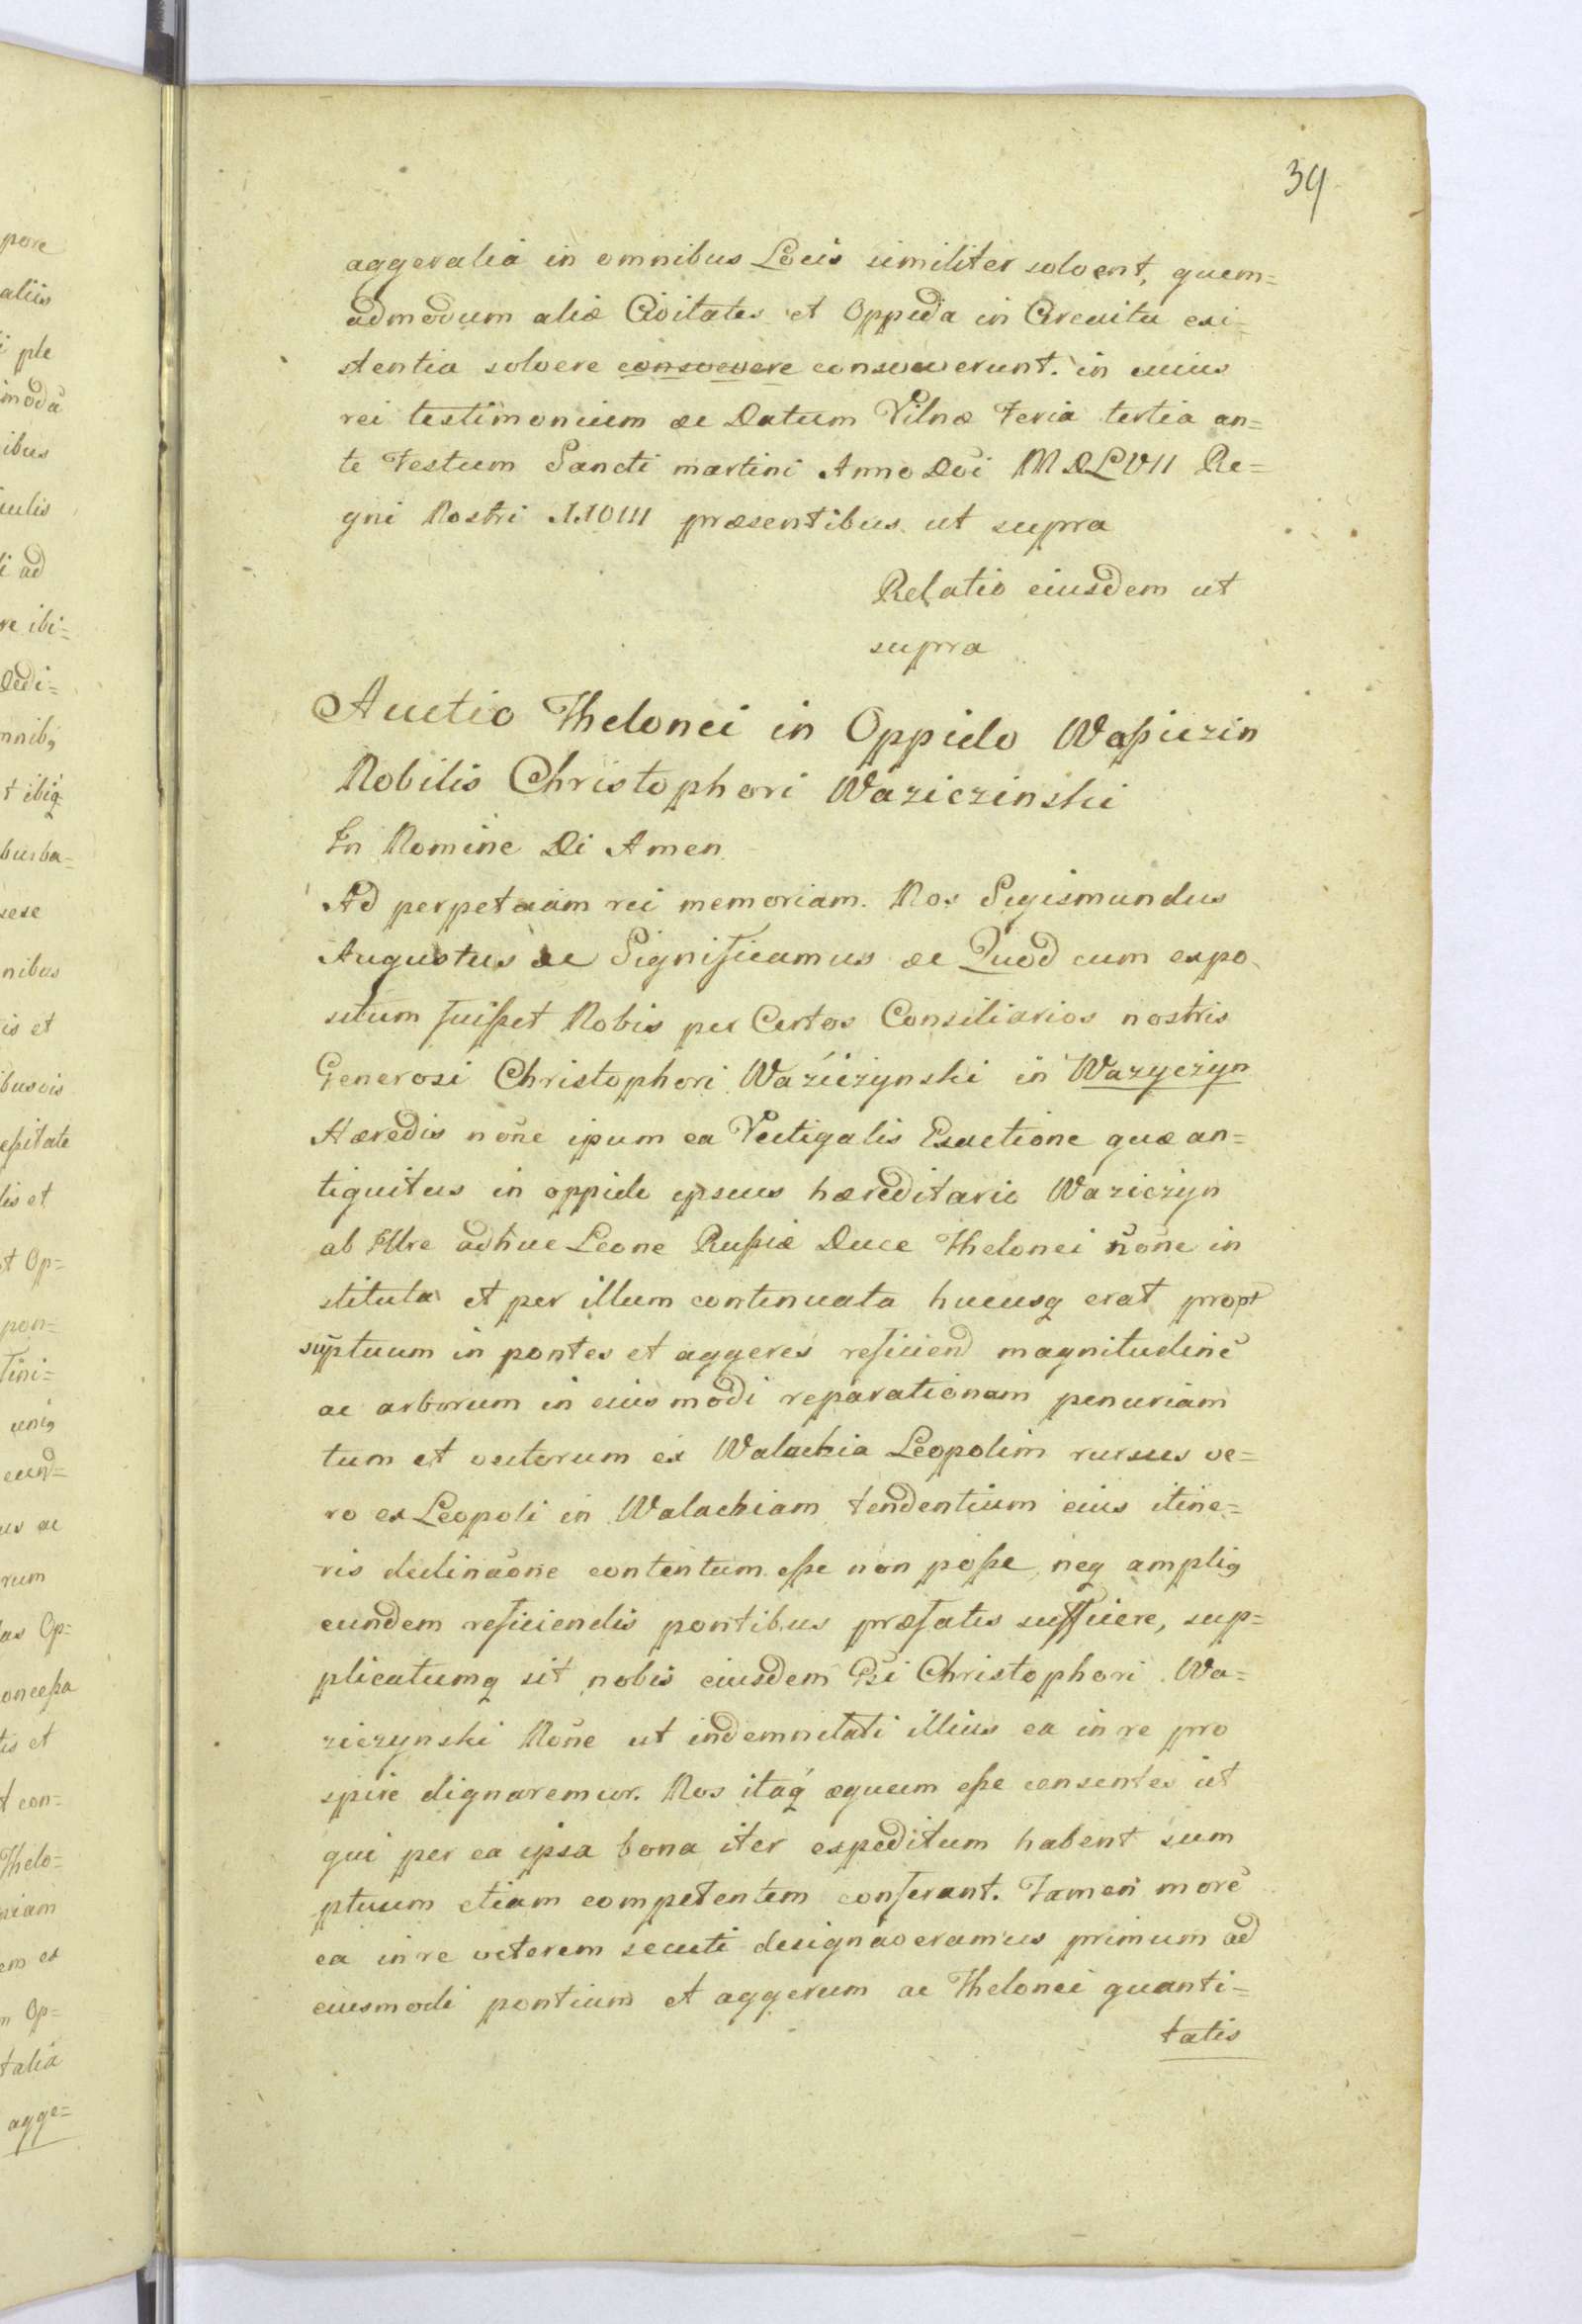 39
aggeralia in omnibus Locis similiter solvent, quem=
admodum aliæ Civitates et Oppida in Circuitu exi=
stentia solvere consuevere consueverunt. in cuius
rei testimonium &c Datum Vilnæ Feria tertia an=
te Festum Sancti martini Anno Dñi MDLVII Re=
gni Nostri XXVIII præsentibus ut supra
Relatio eiusdem ut
supra
Auctio Thelonei in Oppido Waßiczin
Nobilis Christophori Waziczinski
In Nomine Di Amen
Ad perpetuam rei memoriam. Nos Sigismundus
Augustus &c Significamus &c Quod cum expo
situm fuißet Nobis per Certos Consiliarios nostris
Generosi Christophori Waziczynski in Wazyczyn
Hæredis noñe ipum ea Vectigalis Exactione quæ an=
tiquitus in oppido ipsius hæreditario Waziczyn
ab Illre adhuc Leone Rußiæ Duce Thelonei noñe in
stituta et per illum continuata hucusq erat propt
suptuum in pontes et aggeres reficiend magnitudinē
ac arborum in eiusmodi reparationem penuriam
tum et vectorum ex Walachia Leopolim rursus ve=
ro ex Leopoli in Walachiam tendentium eius itine=
ris declinaõne contentum eße non poße, neq amplig
eundem reficiendis pontibus præfatis sufficere, sup=
plicatumq sit nobis eiusdem Gsi Christophori Wa=
ziczynski Noñe ut indemnitati illius ea in re pro
spire dignaremur. Nos itaq æquum eße censentes ut
qui per ea ipsa bona iter expeditum habent sum
ptuum etiam competentem conferant. Tamen morē
ea in re veterem secuti designaveramus primum ad
eiusmodi pontium et aggerum ac Thelonei quanti=
tatis
pore
aliis
i ple
modā
ibus
culis
i ad
re ibi=
Dedi=
mnibq
t ibiq
bus ba=
sese
nibus
is et
ibusvis
eßitate
lis et
t Op=
pon=
Fini=
eund=
us ac
rum
as Op=
onceßa
tis et
t con=
Thelo=
niam
em ex
n Op=
talia
agge=